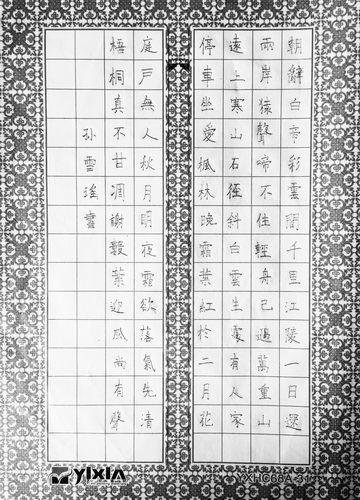 朝辭白帝彩雲間千里江陵一日還
兩岸猿聲啼不住輕舟已過萬重山
遠上寒山石徑斜白雲生處有人家
停車坐愛楓林晚霜葉紅於二月花
庭戶無人秋月明夜霜欲落氣先清
梧桐真不甘凋謝數葉迎风尚有聲
孙雪書
YIXIN